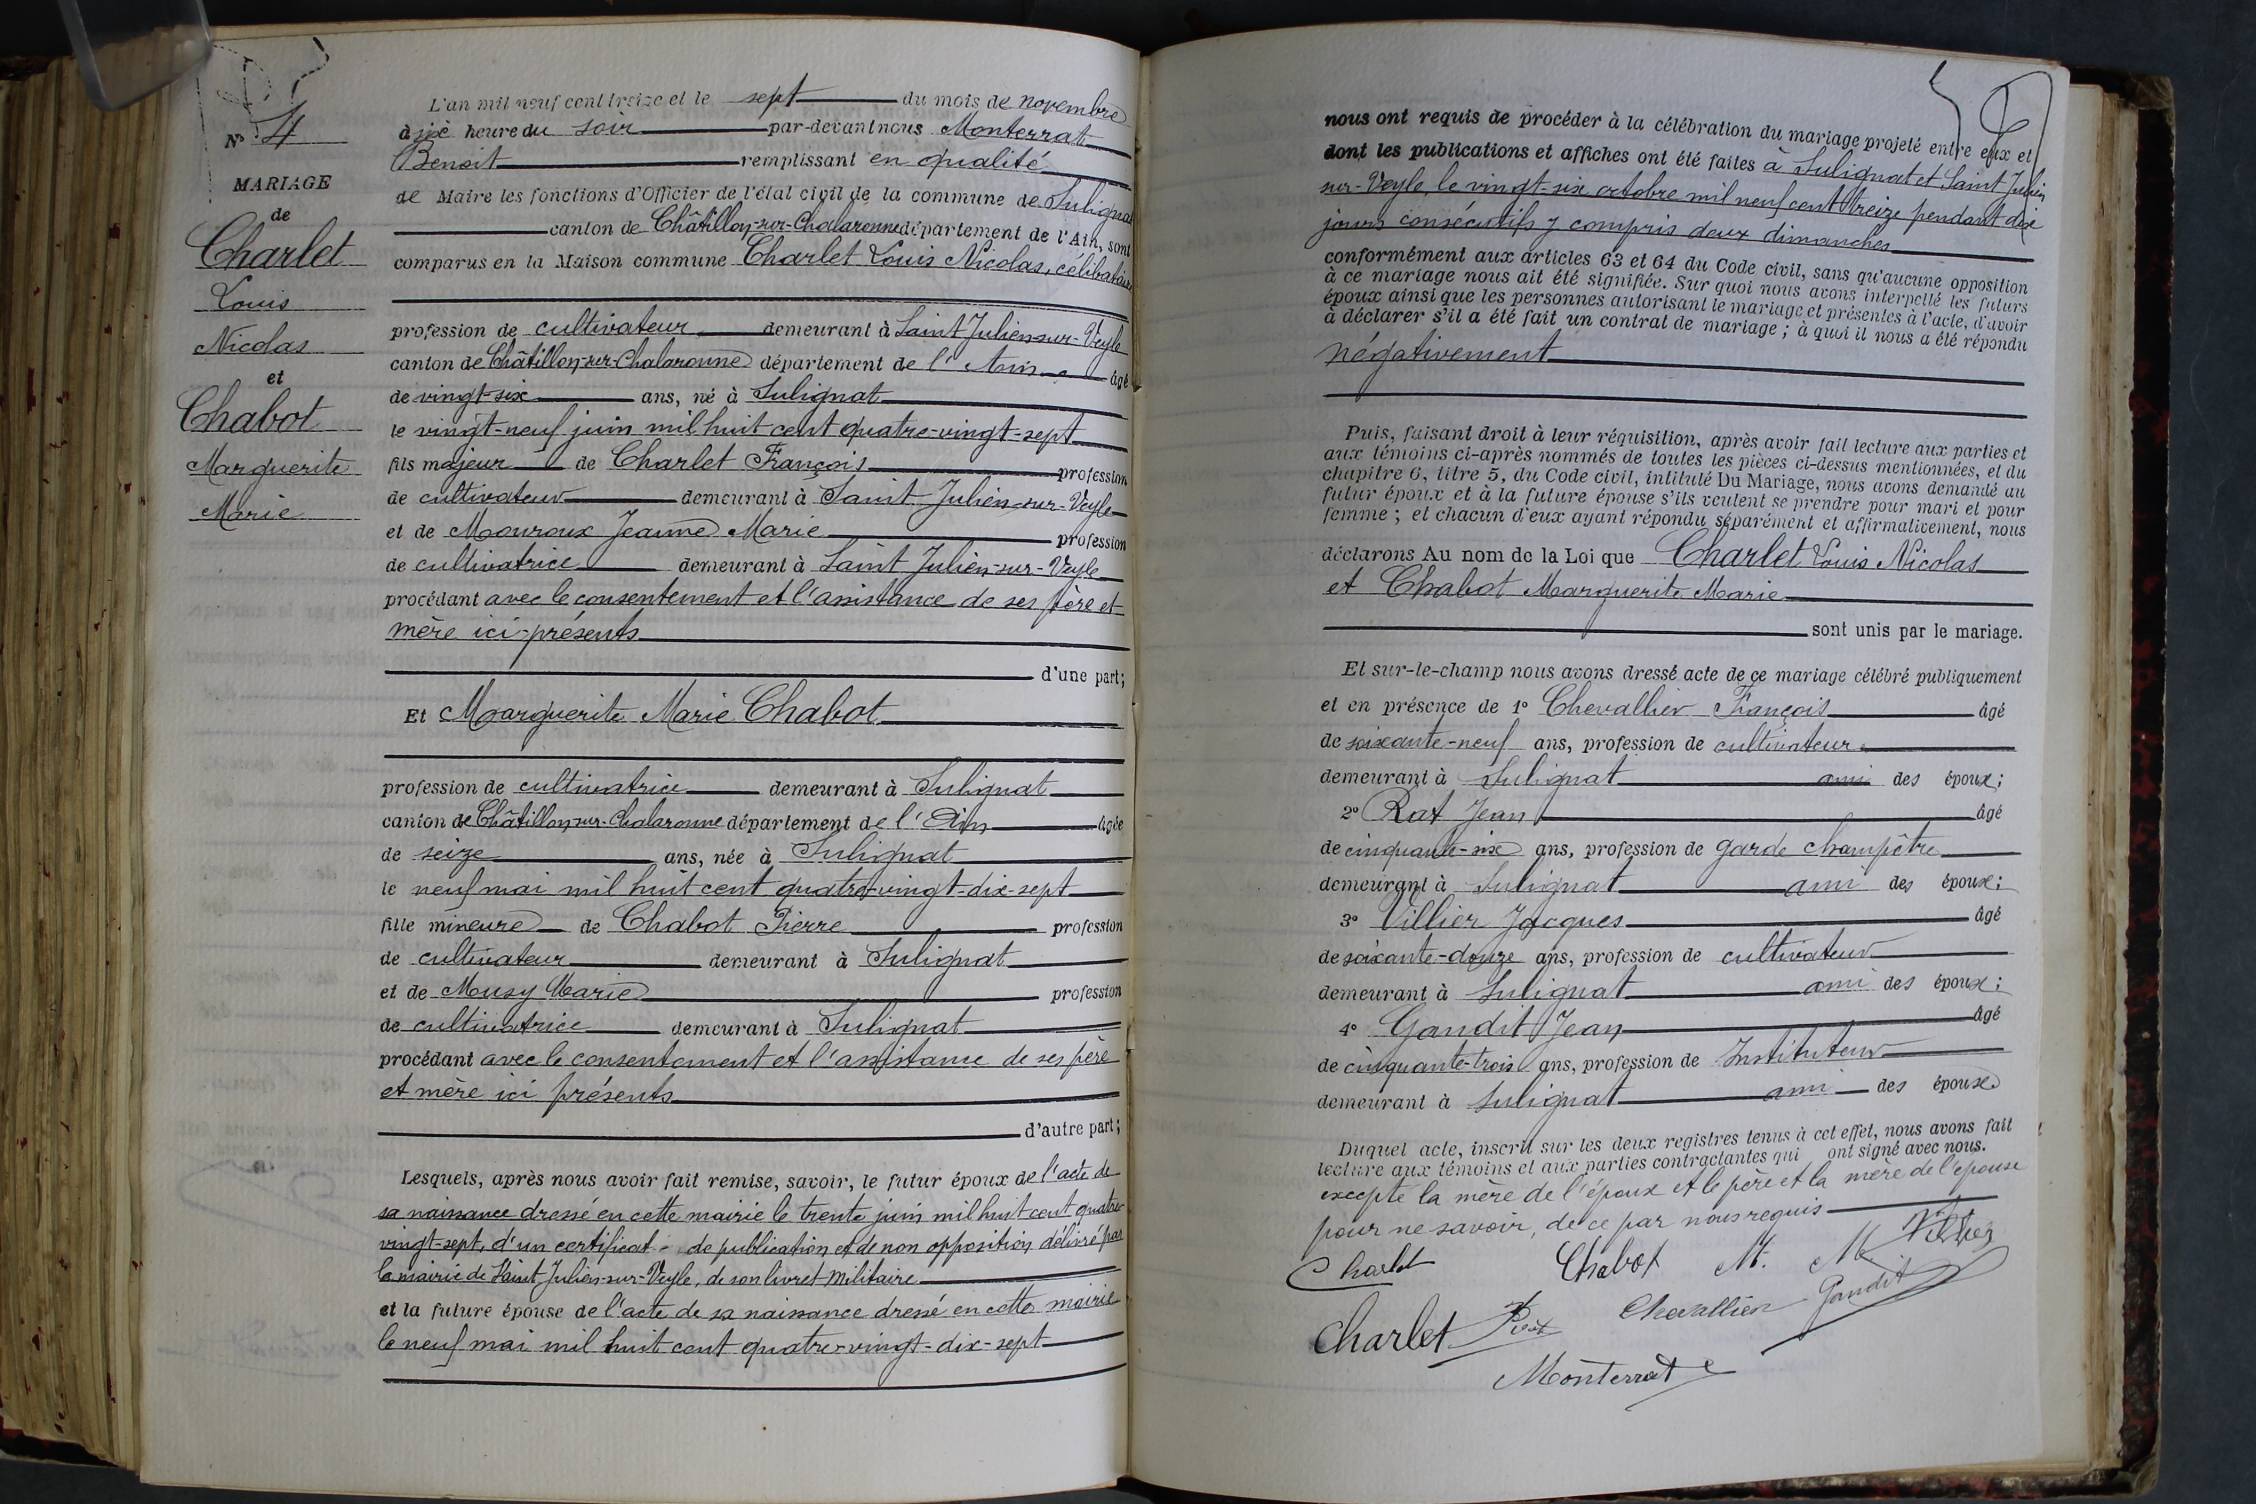 N° 4
MARIAGE
de
Charlet
Louis
Nicolas
et
Chabot
Marguerite
Marie
L'an mil neuf cent treize et le sept du mois de novembre
à six heure du soir par-devant nous Monterrat
Benoit remplissant en qualité
de Maire les fonctions d'Officier de l'état civil de la commune de Sulignat
canton de Châtillon-sur-Chalaronne département de l'Ain, sont
comparus en la Maison commune Charlet Louis Nicolas, célibataire
profession de cultivateur demeurant à Saint Julien-sur-Veyle
canton de Châtillon-sur-Chalaronne département de l'Ain âgé
de vingt-six ans, né à Sulignat
le vingt-neuf juin mil huit cent quatre-vingt-sept
fils majeur de Charlet François profession
de cultivateur demeurant à Saint Julien-sur-Veyle
et de Mouroux Jeanne Marie profession
de cultivatrice demeurant à Saint Julien-sur-Veyle
procédant avec le consentement et l'assistance de ses père et
mère ici présents
d'une part;
Et Marguerite Marie Chabot
profession de cultivatrice demeurant à Sulignat
canton de Châtillon-sur-Chalaronne département de l'Ain âgée
de seize ans, née à Sulignat
le neuf mai mil huit cent quatre-vingt-dix-sept
fille mineure de Chabot Pierre profession
de cultivateur demeurant à Sulignat
et de Musy Marie profession
de cultivatrice demeurant à Sulignat
procédant avec le consentement et l'assistance de ses père
et mère ici présents
d'autre part;
Lesquels, après nous avoir fait remise, savoir, le futur époux de l'acte de
sa naissance dressé en cette mairie le trente juin mil huit cent quatre
vingt-sept, d'un certificat de publication et de non opposition délivré par
la mairie de Saint Julien-sur-Veyle, de son livret militaire
et la future épouse de l'acte de sa naissance dressé en cette mairie
le neuf mai mil huit cent quatre-vingt-dix-sept
nous ont requis de procéder à la célébration du mariage projeté entre eux et
dont les publications et affiches ont été faites à Sulignat et Saint Julien
sur-Veyle, le vingt-six octobre mil neuf cent treize pendant dix
jours consécutifs y compris deux dimanches
conformément aux articles 63 et 64 du Code civil, sans qu'aucune opposition
à ce mariage nous ait été signifiée. Sur quoi nous avons interpellé les futurs
époux ainsi que les personnes autorisant le mariage et présentes à l'acte, d'avoir
à déclarer s'il a été fait un contrat de mariage; à quoi il nous a été répondu
négativement
Puis, faisant droit à leur réquisition, après avoir fait lecture aux parties et
aux témoins ci-après nommés de toutes les pièces ci-dessus mentionnées, et du
chapitre 6, titre 5, du Code civil, intitulé Du Mariage, nous avons demandé au
futur époux et à la future épouse s'ils veulent se prendre pour mari et pour
femme; et chacun d'eux ayant répondu séparément et affirmativement, nous
déclarons Au nom de la Loi que Charlet Louis Nicolas
et Chabot Marguerite Marie
sont unis par le mariage.
Et sur-le-champ nous avons dressé acte de ce mariage célébré publiquement
et en présence de 1° Chevallier François âgé
de soixante-neuf ans, profession de cultivateur
demeurant à Sulignat ami des époux;
2° Rat Jean âgé
de cinquante-six ans, profession de garde champêtre
demeurant à Sulignat ami des époux;
3° Villier Jacques âgé
de soixante-douze ans, profession de cultivateur
demeurant à Sulignat ami des époux;
4° Gandit Jean âgé
de cinquante-trois ans, profession de Instituteur
demeurant à Sulignat ami des époux
Duquel acte, inscrit sur les deux registres tenus à cet effet, nous avons fait
lecture aux témoins et aux parties contractantes qui ont signé avec nous.
excepté la mère de l'époux et le père et la mère de l'épouse
pour ne savoir, de ce par nous requis
Charlet Chabot M.
Charlet Chevallier Gandit
Monterrat